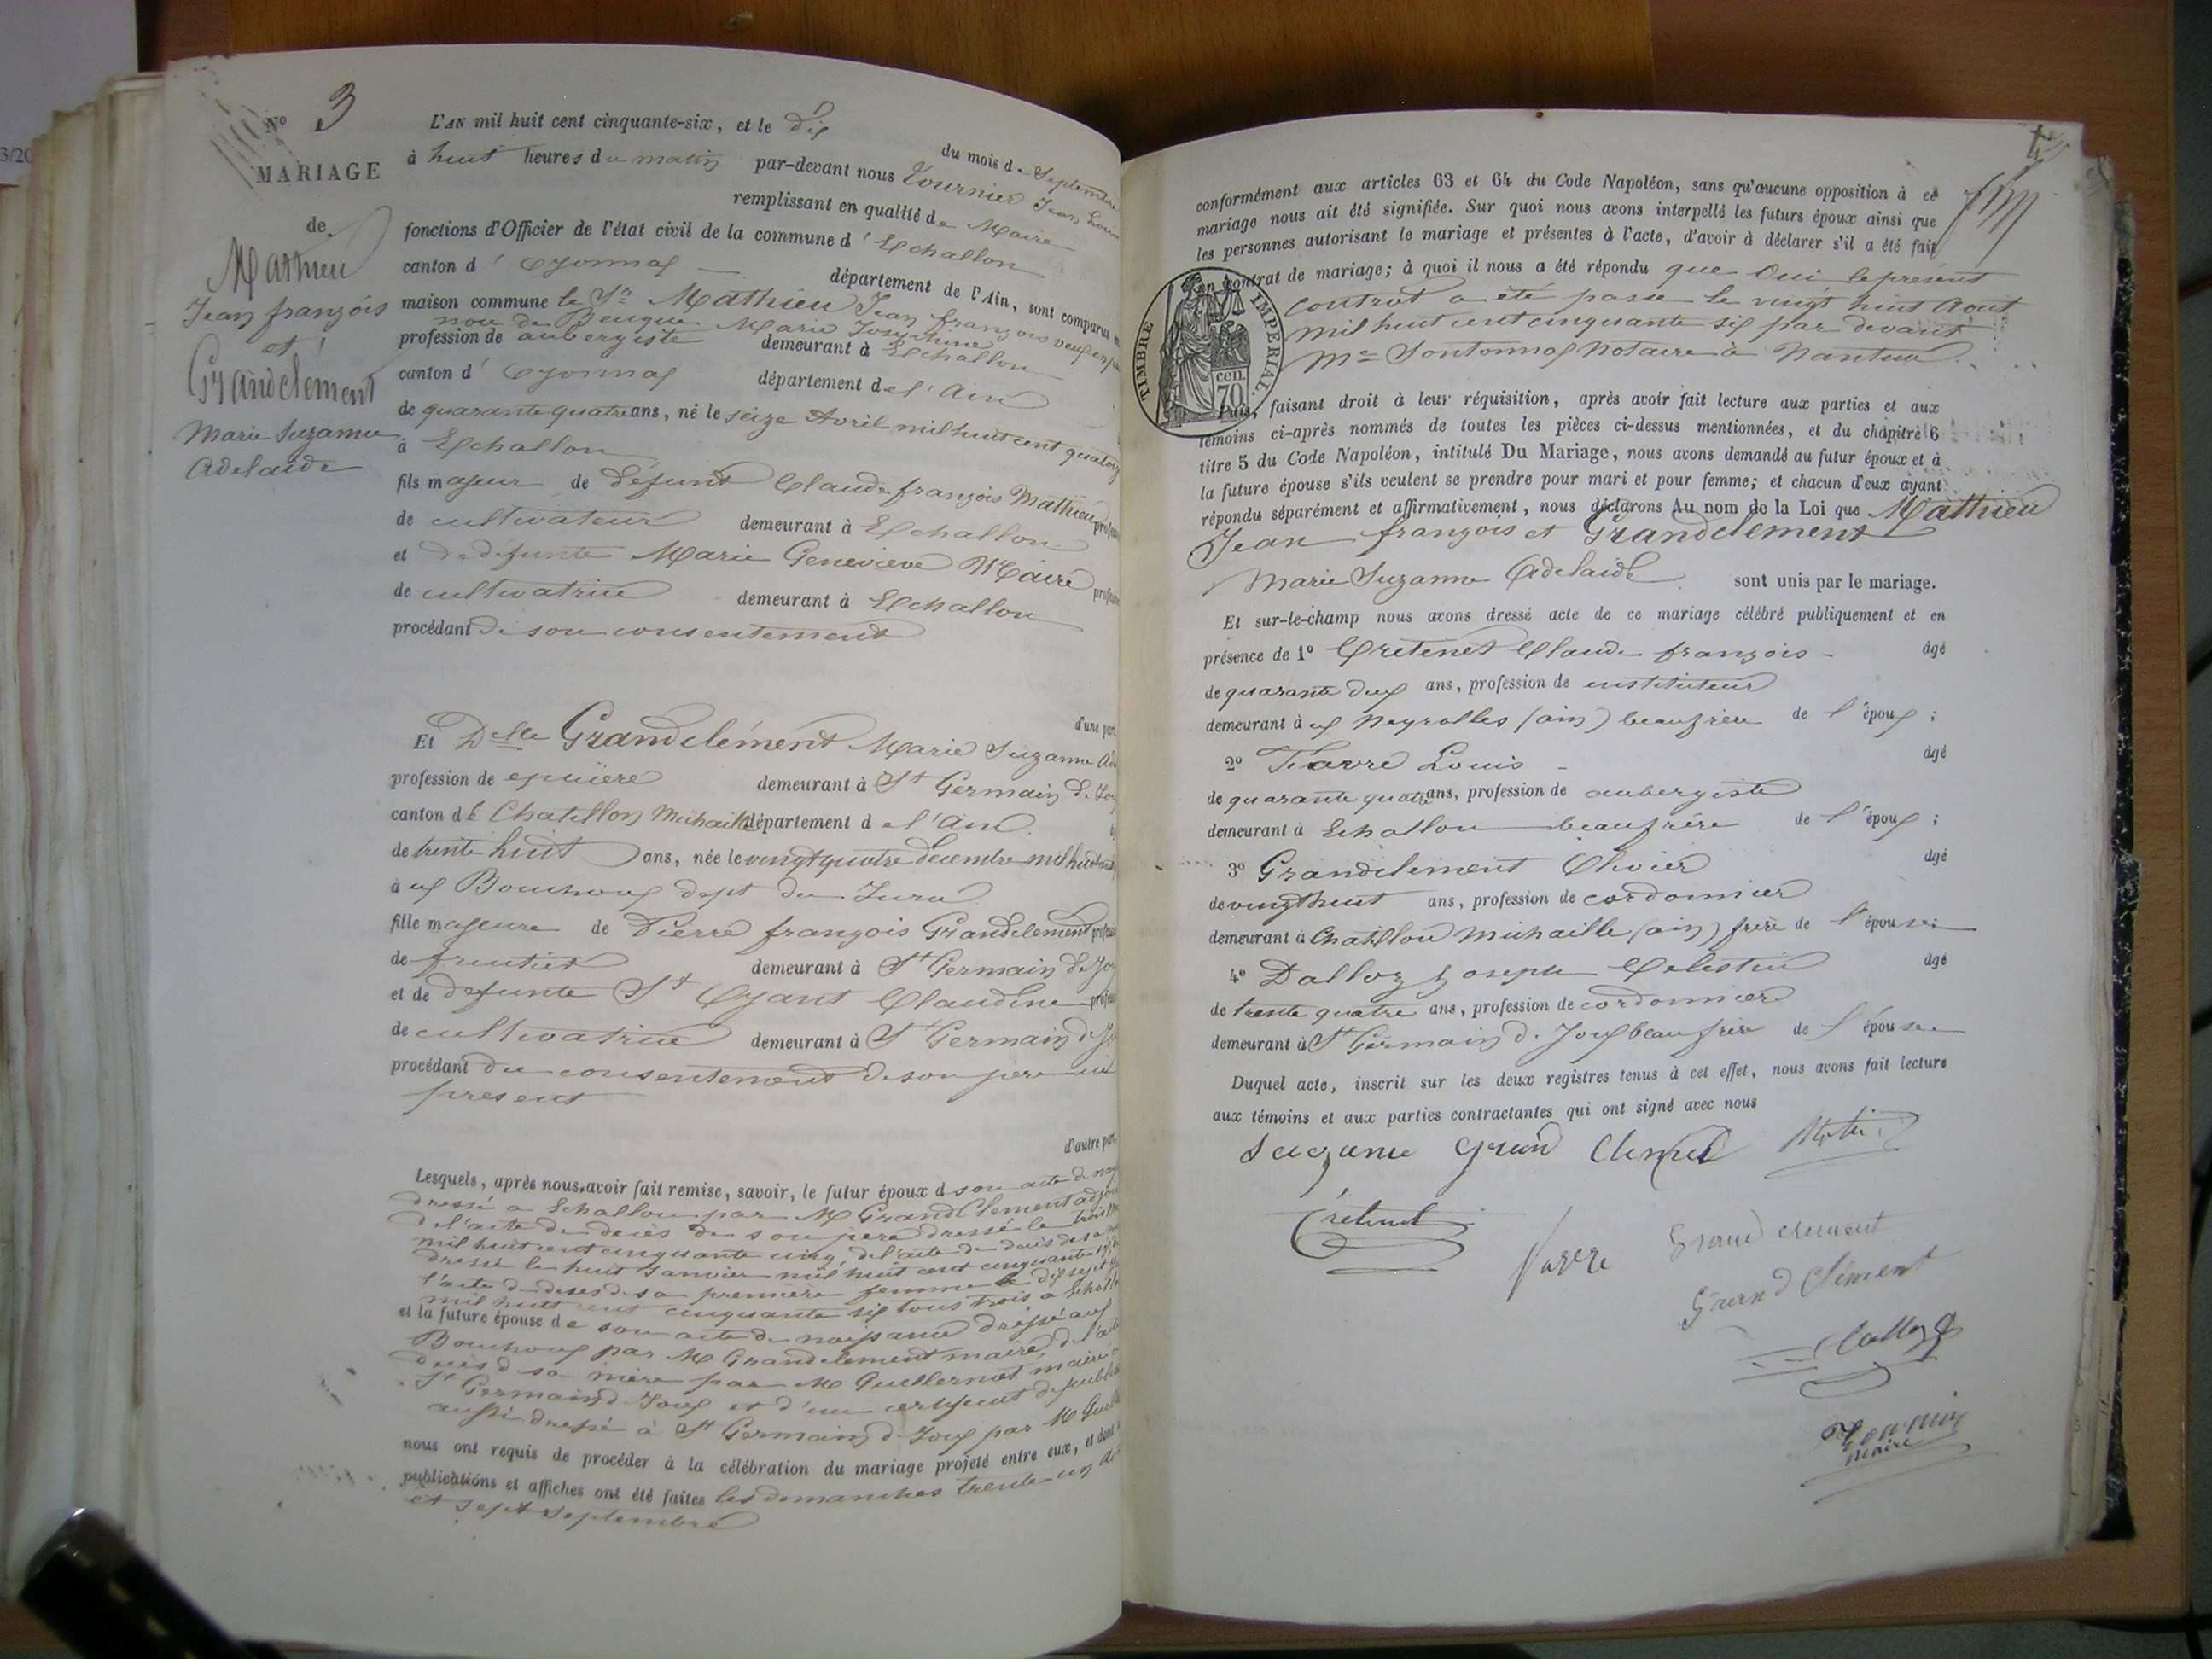 3/20
Nº 3
MARIAGE
de
Mathieu
Jean françois
et
Grandclément
Marie Suzanne
Adelaïde
L'AN mil huit cent cinquante-six, et le dix du mois de Septembre
à huit heures du matin par-devant nous Tournier Jean Louis
remplissant en qualité de Maire
fonctions d'Officier de l'état civil de la commune d'Echallon
canton d'Oyonnax département de l'Ain, sont comparus
maison commune le Sr Mathieu Jean françois veuf en
Marie Josephine
profession de aubergiste demeurant à Echallon
canton d'Oyonnax département de l'Ain
de quarante quatre ans, né le seize Avril mil huit cent
à Echallon
fils majeur de défunt Claude françois Mathieu
de cultivateur demeurant à Echallon
et de défunte Marie Geneviève Maire
de cultivatrice demeurant à Echallon
procédant de son consentement
d'une part
Et Delle Grandclément Marie Suzanne
profession de epicière demeurant à St Germain de
canton de Chatillon Michaille département de l'Ain
de trente huit ans, née le vingt quatre décembre mil huit cent
à ux Bouchoux dept du Jura
fille majeure de Pierre françois Grandclément
de fruitier demeurant à St Germain de
et de défunte St Oyant Claudine
de cultivatrice demeurant à St Germain de
procédant du consentement de son père ici
présent
d'autre part
Lesquels, après nous avoir fait remise, savoir, le futur époux de son acte de
dressé a Echallon par M Grandclement
de l'acte de décès de son père dressé le trois
mil huit cent cinquante cinq, de l'acte de décès de sa
dressé le huit Janvier mil huit cent cinquante
l'acte de décès de sa première femme le dix sept
mil huit cent cinquante six tous trois a
et la future épouse de son acte de naissance dressé aux
Bouchoux par M Grandclement maire, de l'acte
décès de sa mère par M Guillermet maire
St Germain de Joux et d'un certificat de
aussi dressé à St Germain de Joux par M
nous ont requis de procéder à la célébration du mariage projeté entre eux, et dont
publications et affiches ont été faites les dimanches trente-un
et sept septembre
conformément aux articles 63 et 64 du Code Napoléon, sans qu'aucune opposition à ce
mariage nous ait été signifiée. Sur quoi nous avons interpellé les futurs époux ainsi que
les personnes autorisant le mariage et présentes à l'acte, d'avoir à déclarer s'il a été fait
un contrat de mariage; à quoi il nous a été répondu que Oui le présent
contrat a été passé le vingt huit Aout
mil huit cent cinquante six par devant
Me Sontonnax Notaire à Nantua
TIMBRE IMPERIAL
70 cen.
Puis, faisant droit à leur réquisition, après avoir fait lecture aux parties et aux
témoins ci-après nommés de toutes les pièces ci-dessus mentionnées, et du chapitre 6
titre 5 du Code Napoléon, intitulé Du Mariage, nous avons demandé au futur époux et à
la future épouse s'ils veulent se prendre pour mari et pour femme; et chacun d'eux ayant
répondu séparément et affirmativement, nous déclarons Au nom de la Loi que Mathieu
Jean françois et Grandclement
Marie Suzanne Adelaide sont unis par le mariage.
Et sur-le-champ nous avons dressé acte de ce mariage célébré publiquement et en
présence de 1º Cretenet Claude françois âgé
de quarante deux ans, profession de instituteur
demeurant à ux Neyrolles (ain) beaufrère de l'époux;
2º Favre Louis âgé
de quarante quatre ans, profession de aubergiste
demeurant à Echallon beaufrère de l'époux;
3º Grandclement Olivier âgé
de vingt huit ans, profession de cordonnier
demeurant à Chatillon Michaille (ain) frère de l'épouse;
4º Dalloz Joseph Celestin âgé
de trente quatre ans, profession de cordonnier
demeurant à St Germain de Joux beaufrère de l'épouse
Duquel acte, inscrit sur les deux registres tenus à cet effet, nous avons fait lecture
aux témoins et aux parties contractantes qui ont signé avec nous
Suzanne Grand Clement
Crétenet
Favre
Grand clement
Grand Clément
Dalloz
Tournier
maire